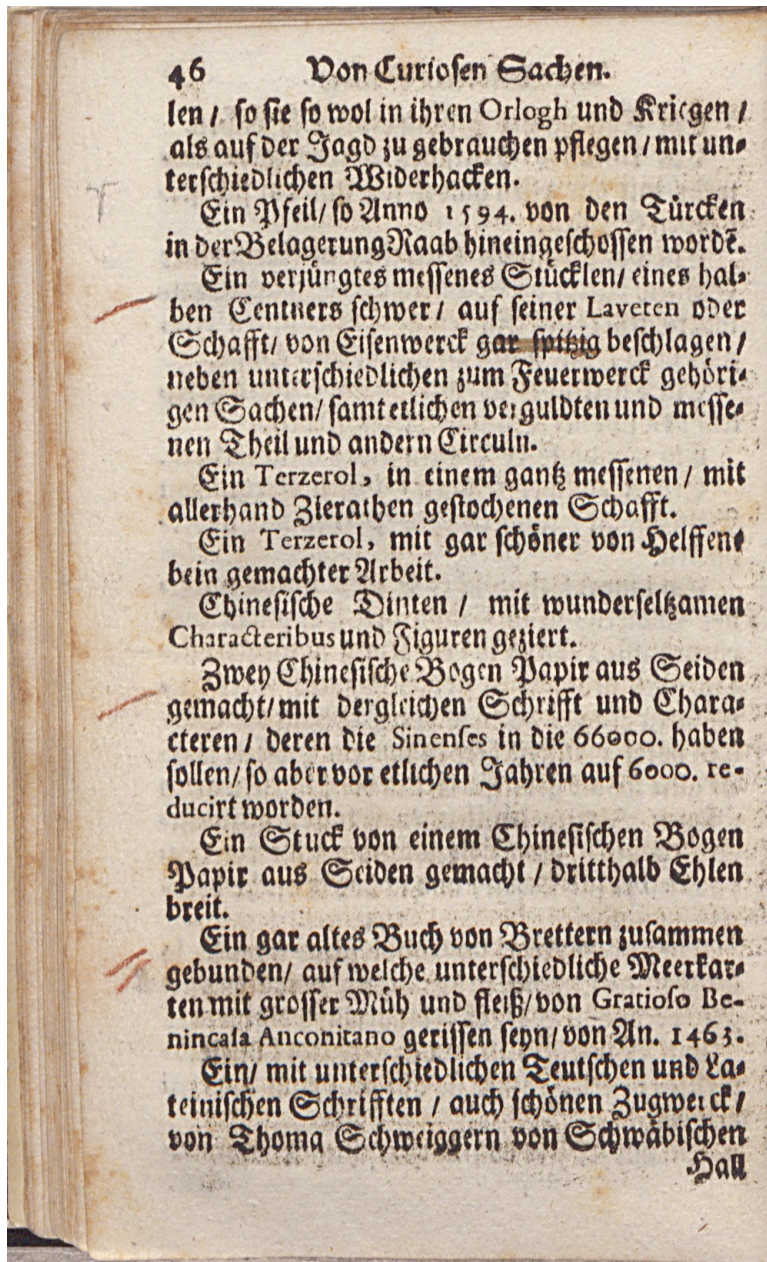 46 Von Curiosen Sachen.
len / so sie so wol in ihren Orlogh und Kriegen /
als auf der Jagd zu gebrauchen pflegen / mit un-
terschiedlichen Widerhacken.
Ein Pfeil / so Anno 1594. von den Türcken
in der Belagerung Raab hineingeschossen wordẽ.
Ein verjüngtes messenes Stücklen / eines hal-
ben Centners schwer / auf seiner Laveten oder
Schafft / von Eisenwerck gar spitzig beschlagen /
neben unterschiedlichen zum Feuerwerck gehöri-
gen Sachen / samt etlichen verguldten und messe-
nen Theil und andern Circuln.
Ein Terzerol, in einem gantz messenen / mit
allerhand Zierathen gestochenen Schafft.
Ein Terzerol, mit gar schöner von Helffen-
bein gemachter Arbeit.
Chinesische Dinten / mit wunderseltzamen
Characteribus und Figuren geziert.
Zwey Chinesische Bogen Papir aus Seiden
gemacht / mit dergleichen Schrifft und Chara-
cteren / deren die Sinenses in die 66000. haben
sollen / so aber vor etlichen Jahren auf 6000. re-
ducirt worden.
Ein Stuck von einem Chinesischen Bogen
Papir aus Seiden gemacht / dritthalb Ehlen
breit.
Ein gar altes Buch von Brettern zusammen
gebunden / auf welche unterschiedliche Meerkar-
ten mit grosser Müh und fleiß / von Gratioso Be-
nincasa Anconitano gerissen seyn / von An. 1463.
Ein / mit unterschiedlichen Teutschen und La-
teinischen Schrifften / auch schönen Zugwerck /
von Thoma Schweiggern von Schwäbischen
Hall